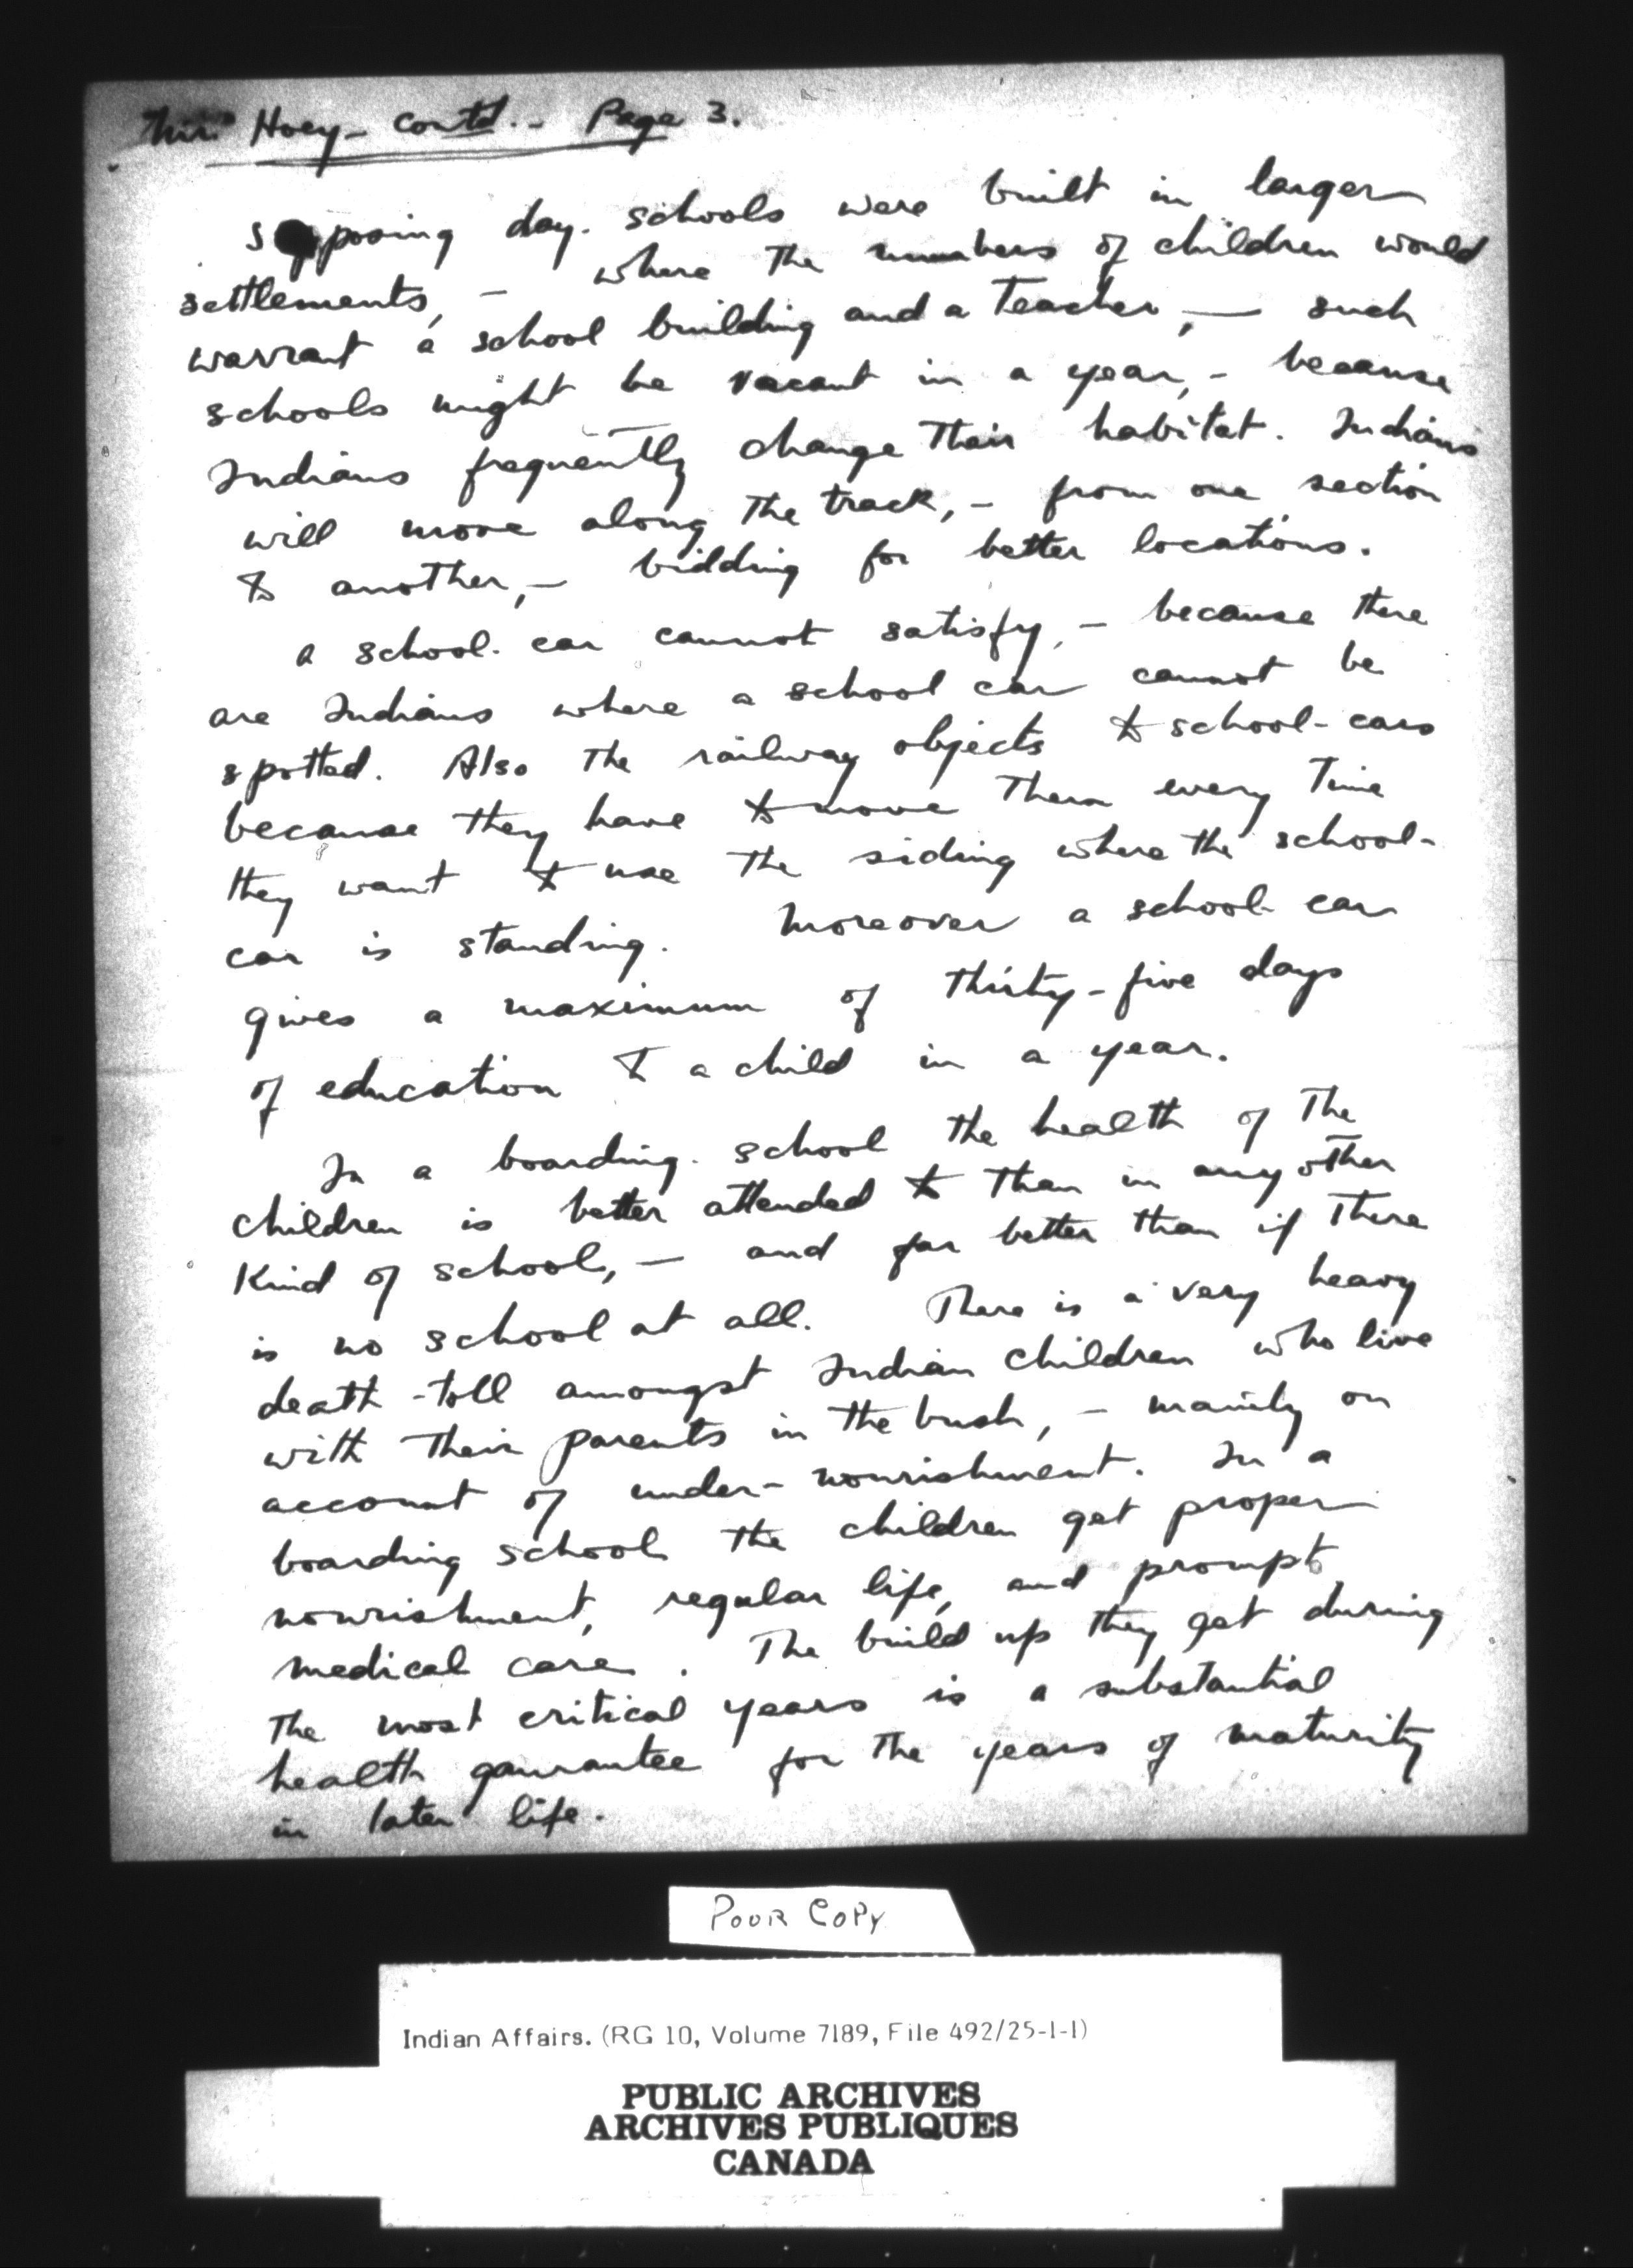 Mr. Hoey - Contd. - Page 3.
Supposing day-schools were built in larger
settlements, - where the numbers of children would
warrant a school building and a teacher, - such
schools might be vacant in a year, - because
Indians frequently change their habitat. Indians
will move along the track, - from one section
to another, - bidding for better locations.
A school-car cannot satisfy, - because there
are Indians where a school car cannot be
spotted. Also the railway objects to school-cars
because they have to move them every time
they want to use the siding where the school-
car is standing. Moreover a school-car
gives a maximum of thirty-five days
of education to a child in a year.
In a boarding-school the health of the
children is better attended to than in any other
kind of school, - and far better than if there
is no school at all. There is a very heavy
death-toll amongst Indian children who live
with their parents in the bush, - mainly on
account of under-nourishment. In a
boarding school the children get proper
nourishment, regular life, and prompt
medical care. The build up they get during
the most critical years is a substantial
health gaurantee for the years of maturity
in later life.
POOR COPY
Indian Affairs. (RG 10, Volume 7189, File 492/25-1-1)
PUBLIC ARCHIVES
ARCHIVES PUBLIQUES
CANADA